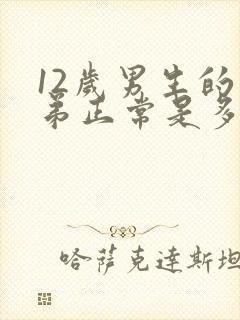 12岁男生的
弟正常是多
哈萨克达斯坦